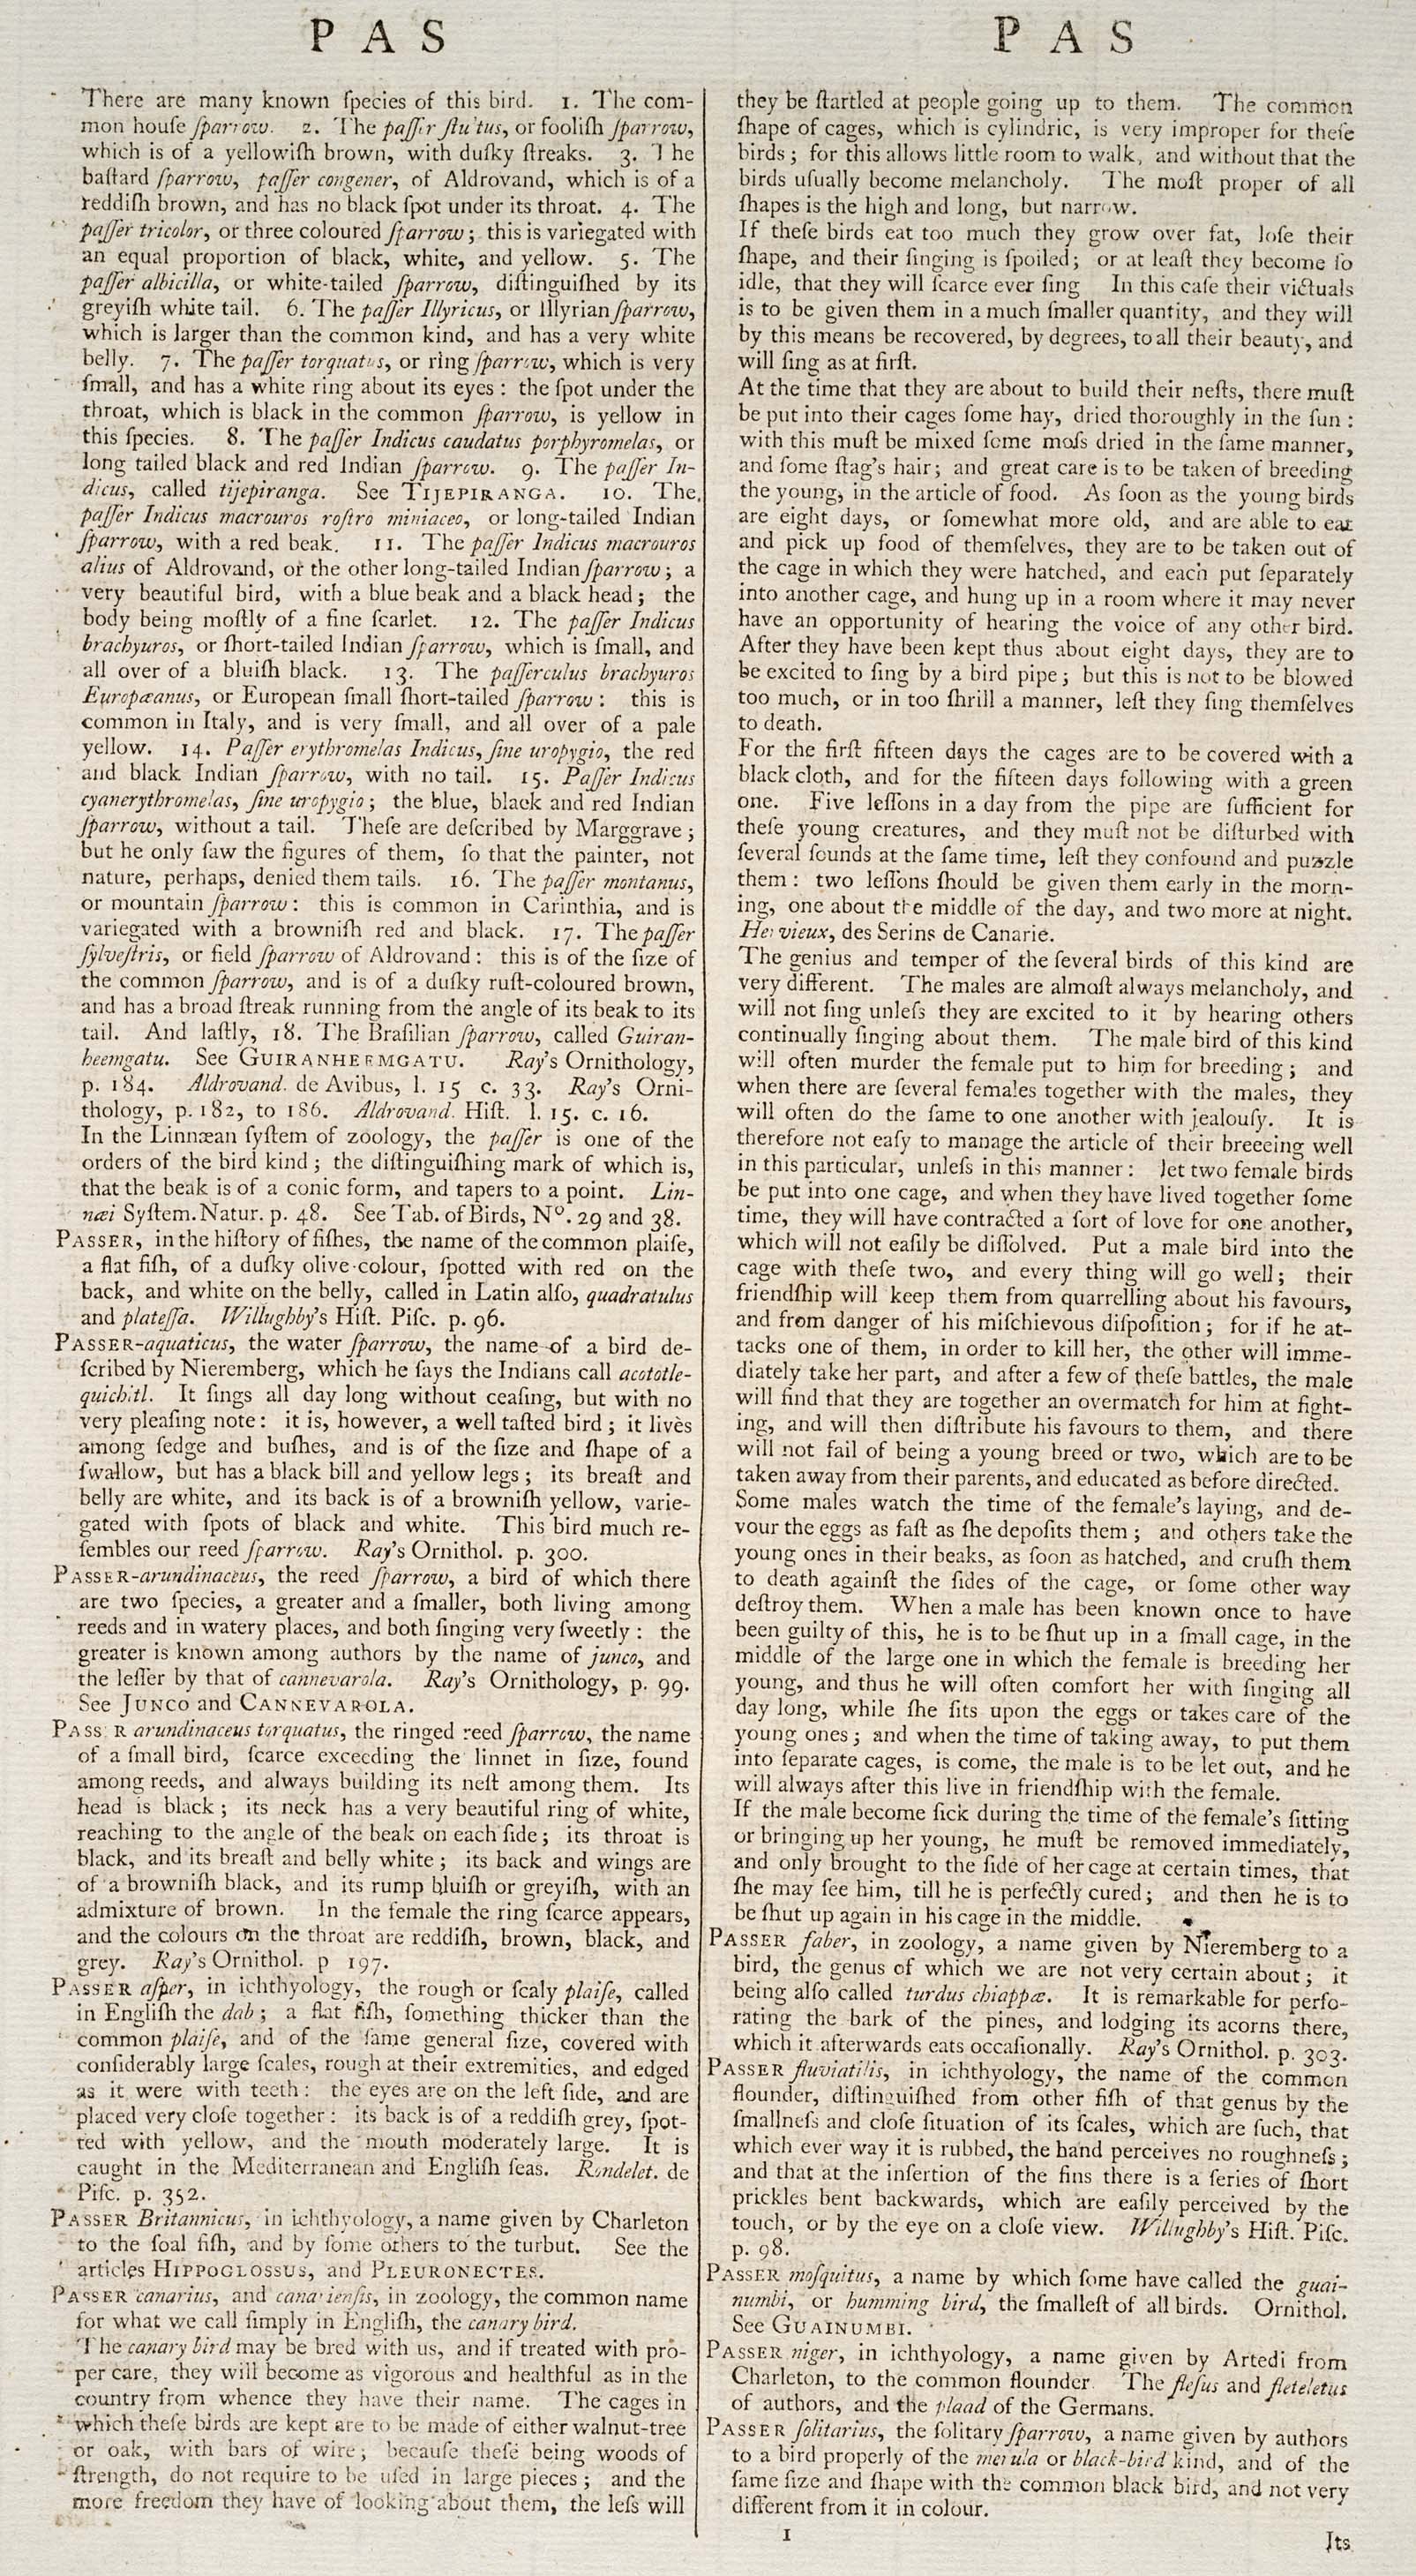 PAS
PAS
There are many known ſpecies of this bird. 1. The com-
mon houſe ſparrow. 2. The paſſer ſtultus, or fooliſh ſparrow,
which is of a yellowiſh brown, with duſky ſtreaks. 3. The
baſtard ſparrow, paſſer congener, of Aldrovand, which is of a
reddiſh brown, and has no black ſpot under its throat. 4. The
paſſer tricolor, or three coloured ſparrow; this is variegated with
an equal proportion of black, white, and yellow. 5. The
paſſer albicilla, or white-tailed ſparrow, diſtinguiſhed by its
greyiſh white tail. 6. The paſſer Illyricus, or Illyrian ſparrow,
which is larger than the common kind, and has a very white
belly. 7. The paſſer torquatus, or ring ſparrow, which is very
ſmall, and has a white ring about its eyes: the ſpot under the
throat, which is black in the common ſparrow, is yellow in
this ſpecies. 8. The paſſer Indicus caudatus porphyromelas, or
long tailed black and red Indian ſparrow. 9. The paſſer In-
dicus, called tijepiranga. See TIJEPIRANGA. 10. The
paſſer Indicus macrouros roſtro miniaceo, or long-tailed Indian
ſparrow, with a red beak. 11. The paſſer Indicus macrouros
alius of Aldrovand, or the other long-tailed Indian ſparrow; a
very beautiful bird, with a blue beak and a black head; the
body being moſtly of a fine ſcarlet. 12. The paſſer Indicus
brachyuros, or ſhort-tailed Indian ſparrow, which is ſmall, and
all over of a bluiſh black. 13. The paſſerculus brachyuros
Europæanus, or European ſmall ſhort-tailed ſparrow: this is
common in Italy, and is very ſmall, and all over of a pale
yellow. 14. Paſſer erythromelas Indicus, ſine uropygio, the red
and black Indian ſparrow, with no tail. 15. Paſſer Indicus
cyanerythromelas, ſine uropygio; the blue, black and red Indian
ſparrow, without a tail. Theſe are deſcribed by Marggrave;
but he only ſaw the figures of them, ſo that the painter, not
nature, perhaps, denied them tails. 16. The paſſer montanus,
or mountain ſparrow: this is common in Carinthia, and is
variegated with a browniſh red and black. 17. The paſſer
ſylveſtris, or field ſparrow of Aldrovand: this is of the ſize of
the common ſparrow, and is of a duſky ruſt-coloured brown,
and has a broad ſtreak running from the angle of its beak to its
tail. And laſtly, 18. The Braſilian ſparrow, called Guiran-
heemgatu. See GUIRANHEEMGATU. Ray's Ornithology,
p. 184. Aldrovand. de Avibus, l. 15 c. 33. Ray's Orni-
thology, p. 182, to 186. Aldrovand. Hiſt. l. 15. c. 16.
In the Linnæan ſyſtem of zoology, the paſſer is one of the
orders of the bird kind; the diſtinguiſhing mark of which is,
that the beak is of a conic form, and tapers to a point. Lin-
næi Syſtem. Natur. p. 48. See Tab. of Birds, Nº. 29 and 38.
PASSER, in the hiſtory of fiſhes, the name of the common plaiſe,
a flat fiſh, of a duſky olive-colour, ſpotted with red on the
back, and white on the belly, called in Latin alſo, quadratulus
and plateſſa. Willughby's Hiſt. Piſc. p. 96.
PASSER-aquaticus, the water ſparrow, the name of a bird de-
ſcribed by Nieremberg, which he ſays the Indians call acototle-
quichitl. It ſings all day long without ceaſing, but with no
very pleaſing note: it is, however, a well taſted bird; it lives
among ſedge and buſhes, and is of the ſize and ſhape of a
ſwallow, but has a black bill and yellow legs; its breaſt and
belly are white, and its back is of a browniſh yellow, varie-
gated with ſpots of black and white. This bird much re-
ſembles our reed ſparrow. Ray's Ornithol. p. 300.
PASSER-arundinaceus, the reed ſparrow, a bird of which there
are two ſpecies, a greater and a ſmaller, both living among
reeds and in watery places, and both ſinging very ſweetly: the
greater is known among authors by the name of junco, and
the leſſer by that of cannevarola. Ray's Ornithology, p. 99.
See JUNCO and CANNEVAROLA.
PASSER arundinaceus torquatus, the ringed reed ſparrow, the name
of a ſmall bird, ſcarce exceeding the linnet in ſize, found
among reeds, and always building its neſt among them. Its
head is black; its neck has a very beautiful ring of white,
reaching to the angle of the beak on each ſide; its throat is
black, and its breaſt and belly white; its back and wings are
of a browniſh black, and its rump bluiſh or greyiſh, with an
admixture of brown. In the female the ring ſcarce appears,
and the colours on the throat are reddiſh, brown, black, and
grey. Ray's Ornithol. p 197.
PASSER aſper, in ichthyology, the rough or ſcaly plaiſe, called
in Engliſh the dab; a flat fiſh, ſomething thicker than the
common plaiſe, and of the ſame general ſize, covered with
conſiderably large ſcales, rough at their extremities, and edged
as it were with teeth: the eyes are on the left ſide, and are
placed very cloſe together: its back is of a reddiſh grey, ſpot-
ted with yellow, and the mouth moderately large. It is
caught in the Mediterranean and Engliſh ſeas. Rondelet. de
Piſc. p. 352.
PASSER Britannicus, in ichthyology, a name given by Charleton
to the ſoal fiſh, and by ſome others to the turbut. See the
articles HIPPOGLOSSUS, and PLEURONECTES.
PASSER canarius, and canarienſis, in zoology, the common name
for what we call ſimply in Engliſh, the canary bird.
The canary bird may be bred with us, and if treated with pro-
per care, they will become as vigorous and healthful as in the
country from whence they have their name. The cages in
which theſe birds are kept are to be made of either walnut-tree
or oak, with bars of wire; becauſe theſe being woods of
ſtrength, do not require to be uſed in large pieces; and the
more freedom they have of looking about them, the leſs will
they be ſtartled at people going up to them. The common
ſhape of cages, which is cylindric, is very improper for theſe
birds; for this allows little room to walk, and without that the
birds uſually become melancholy. The moſt proper of all
ſhapes is the high and long, but narrow.
If theſe birds eat too much they grow over fat, loſe their
ſhape, and their ſinging is ſpoiled; or at leaſt they become ſo
idle, that they will ſcarce ever ſing In this caſe their victuals
is to be given them in a much ſmaller quantity, and they will
by this means be recovered, by degrees, to all their beauty, and
will ſing as at firſt.
At the time that they are about to build their neſts, there muſt
be put into their cages ſome hay, dried thoroughly in the ſun:
with this muſt be mixed ſome moſs dried in the ſame manner,
and ſome ſtag's hair; and great care is to be taken of breeding
the young, in the article of food. As ſoon as the young birds
are eight days, or ſomewhat more old, and are able to eat
and pick up food of themſelves, they are to be taken out of
the cage in which they were hatched, and each put ſeparately
into another cage, and hung up in a room where it may never
have an opportunity of hearing the voice of any other bird.
After they have been kept thus about eight days, they are to
be excited to ſing by a bird pipe; but this is not to be blowed
too much, or in too ſhrill a manner, leſt they ſing themſelves
to death.
For the firſt fifteen days the cages are to be covered with a
black cloth, and for the fifteen days following with a green
one. Five leſſons in a day from the pipe are ſufficient for
theſe young creatures, and they muſt not be diſturbed with
ſeveral ſounds at the ſame time, leſt they confound and puzzle
them: two leſſons ſhould be given them early in the morn-
ing, one about the middle of the day, and two more at night.
Hervieux, des Serins de Canarie.
The genius and temper of the ſeveral birds of this kind are
very different. The males are almoſt always melancholy, and
will not ſing unleſs they are excited to it by hearing others
continually ſinging about them. The male bird of this kind
will often murder the female put to him for breeding; and
when there are ſeveral females together with the males, they
will often do the ſame to one another with jealouſy. It is
therefore not eaſy to manage the article of their breeeing well
in this particular, unleſs in this manner: let two female birds
be put into one cage, and when they have lived together ſome
time, they will have contracted a ſort of love for one another,
which will not eaſily be diſſolved. Put a male bird into the
cage with theſe two, and every thing will go well; their
friendſhip will keep them from quarrelling about his favours,
and from danger of his miſchievous diſpoſition; for if he at-
tacks one of them, in order to kill her, the other will imme-
diately take her part, and after a few of theſe battles, the male
will find that they are together an overmatch for him at fight-
ing, and will then diſtribute his favours to them, and there
will not fail of being a young breed or two, which are to be
taken away from their parents, and educated as before directed.
Some males watch the time of the female's laying, and de-
vour the eggs as faſt as ſhe depoſits them; and others take the
young ones in their beaks, as ſoon as hatched, and cruſh them
to death againſt the ſides of the cage, or ſome other way
deſtroy them. When a male has been known once to have
been guilty of this, he is to be ſhut up in a ſmall cage, in the
middle of the large one in which the female is breeding her
young, and thus he will often comfort her with ſinging all
day long, while ſhe ſits upon the eggs or takes care of the
young ones; and when the time of taking away, to put them
into ſeparate cages, is come, the male is to be let out, and he
will always after this live in friendſhip with the female.
If the male become ſick during the time of the female's ſitting
or bringing up her young, he muſt be removed immediately,
and only brought to the ſide of her cage at certain times, that
ſhe may ſee him, till he is perfectly cured; and then he is to
be ſhut up again in his cage in the middle.
PASSER faber, in zoology, a name given by Nieremberg to a
bird, the genus of which we are not very certain about; it
being alſo called turdus chiappæ. It is remarkable for perfo-
rating the bark of the pines, and lodging its acorns there,
which it afterwards eats occaſionally. Ray's Ornithol. p. 303.
PASSER fluviatilis, in ichthyology, the name of the common
flounder, diſtinguiſhed from other fiſh of that genus by the
ſmallneſs and cloſe ſituation of its ſcales, which are ſuch, that
which ever way it is rubbed, the hand perceives no roughneſs;
and that at the inſertion of the fins there is a ſeries of ſhort
prickles bent backwards, which are eaſily perceived by the
touch, or by the eye on a cloſe view. Willughby's Hiſt. Piſc.
p. 98.
PASSER moſquitus, a name by which ſome have called the guai-
numbi, or humming bird, the ſmalleſt of all birds. Ornithol.
See GUAINUMBI.
PASSER niger, in ichthyology, a name given by Artedi from
Charleton, to the common flounder. The fleſus and fleteletus
of authors, and the plaad of the Germans.
PASSER ſolitarius, the ſolitary ſparrow, a name given by authors
to a bird properly of the merula or black-bird kind, and of the
ſame ſize and ſhape with the common black bird, and not very
different from it in colour.
1
Its